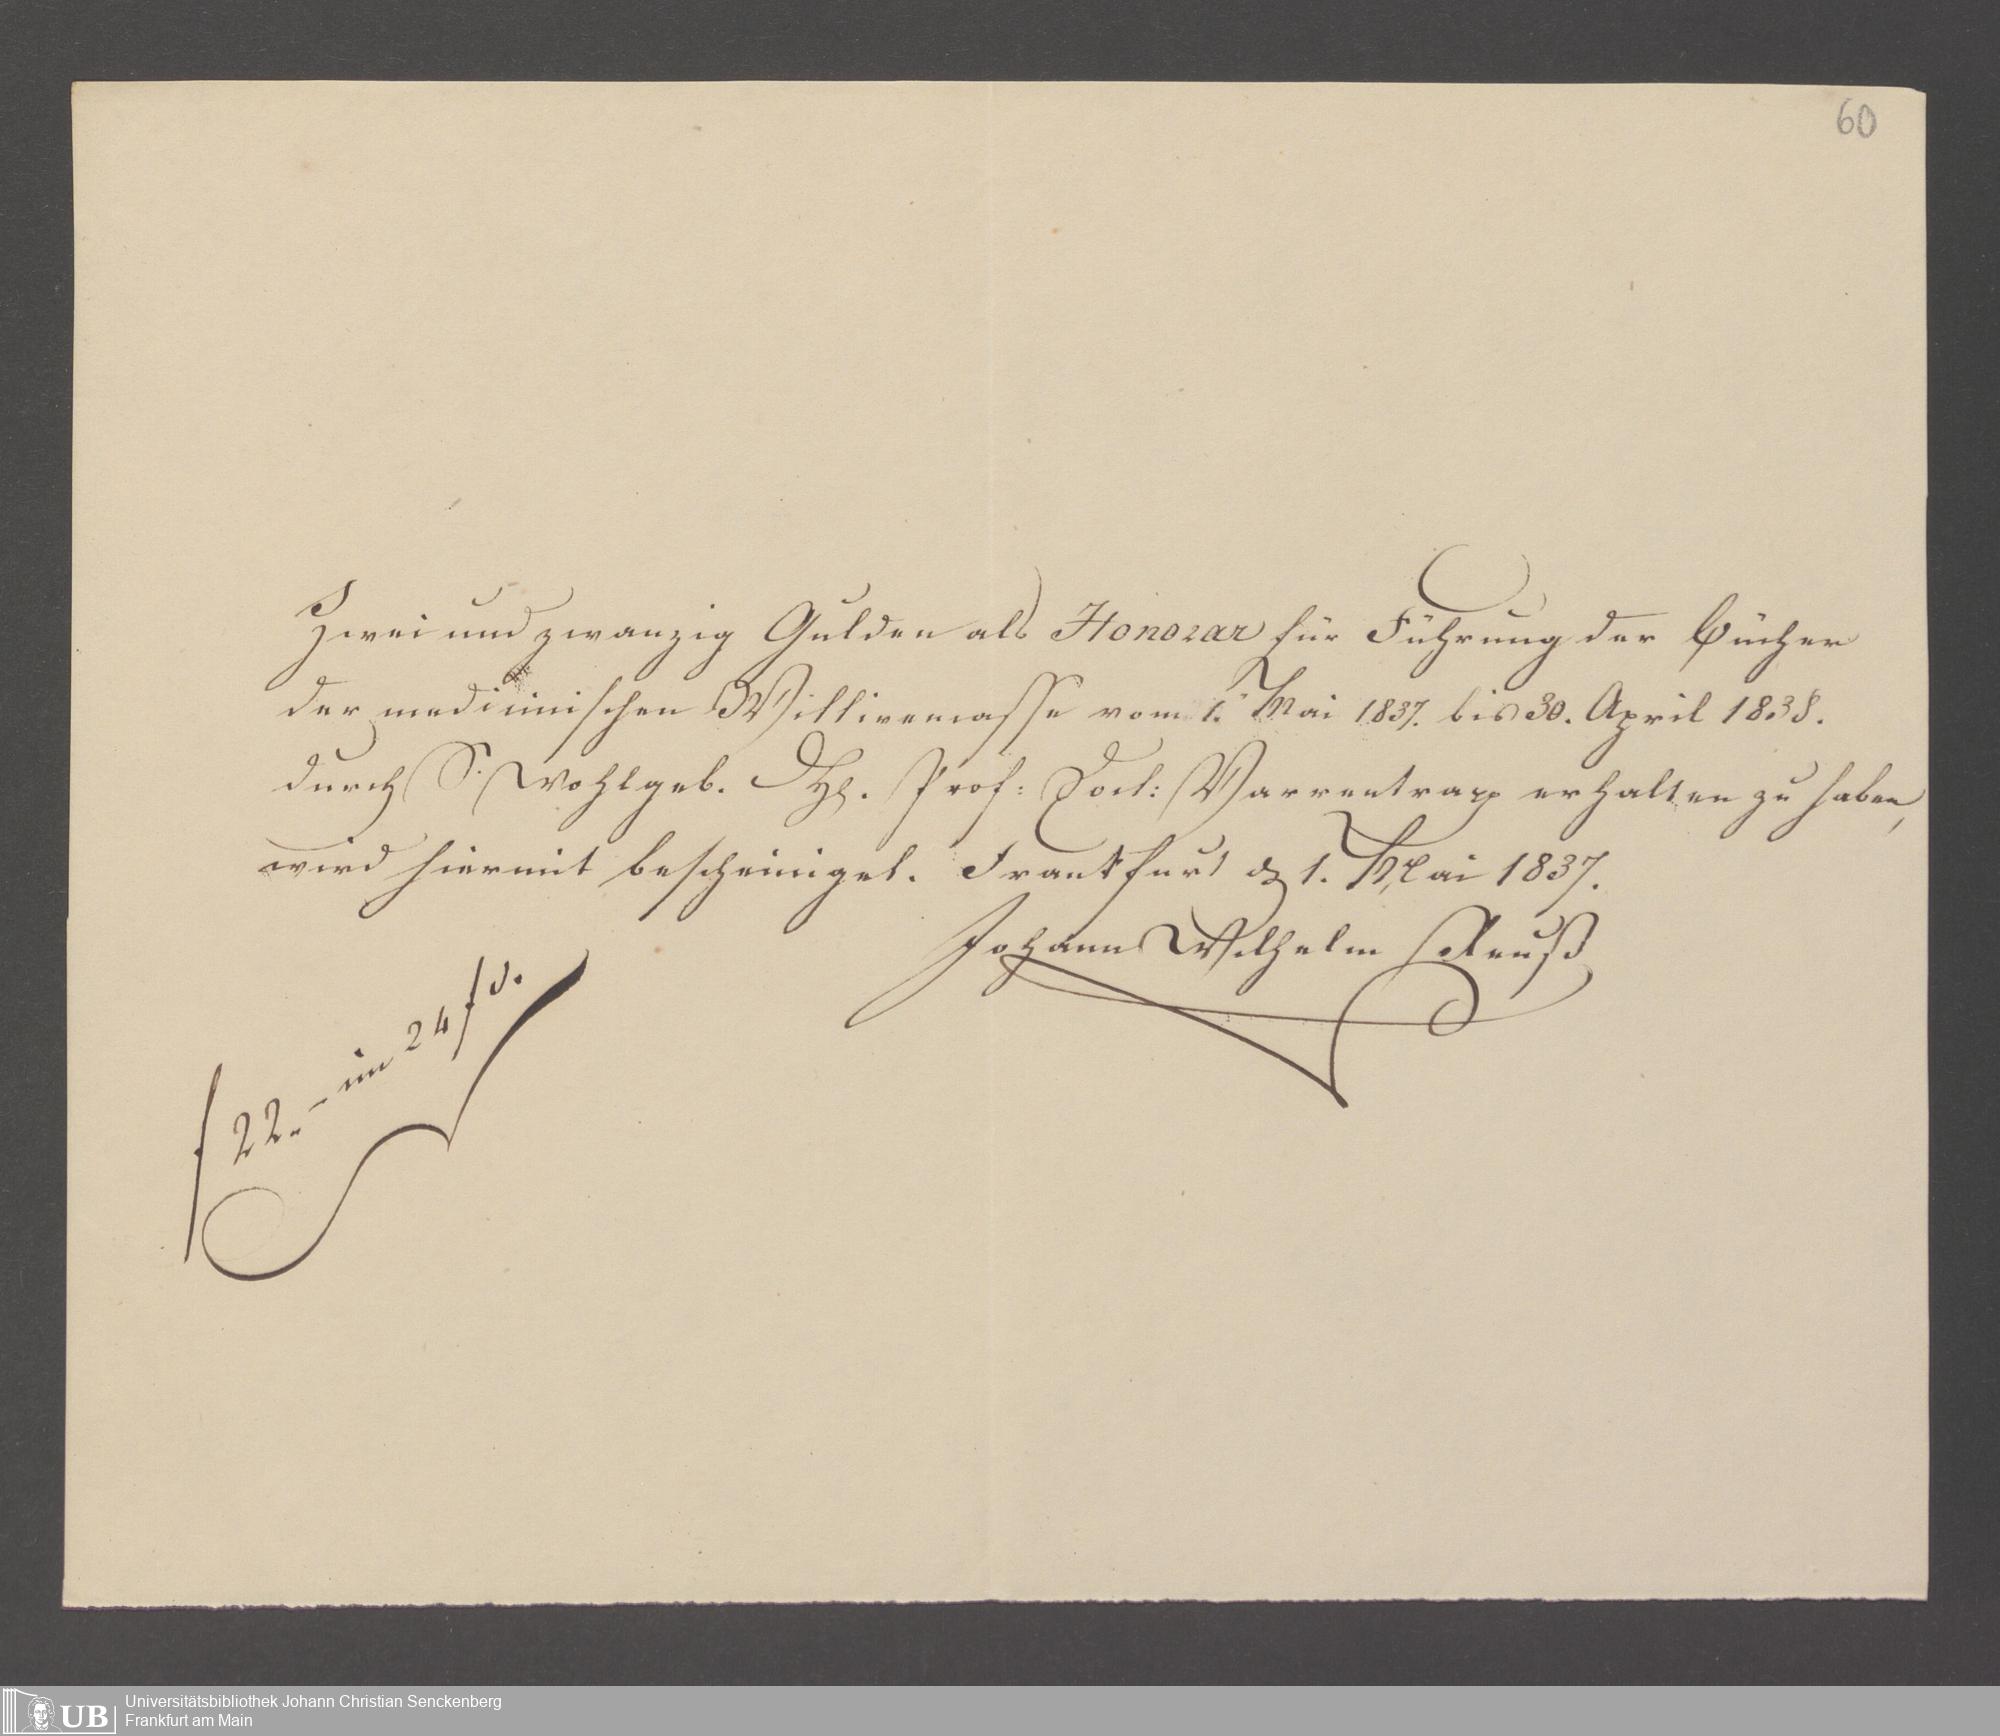 60
Zwei und zwanzig Gulden als Honorar für Führung der Bücher
der medicinischen Wittwencasse vom 1. Mai 1837. bis 30. April 1838.
durch S. Wohlgeb. H. Prof: Doct: Varrentrapp erhalten zu haben,
wird hiermit bescheiniget. Frankfurt d 1. Mai 1837.
Johann Wilhelm Reuß
f 22.- im 24 f
Universitätsbibliothek Johann Christian Senckenberg
UB
Frankfurt am Main